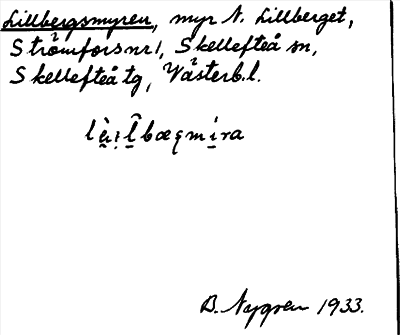 Lillbergsmyren, myr N. Lillberget,
Strömfors nr 1, Skellefteå sn,
Skellefteå tg, Västerb. l.
B. Nygren 1933.